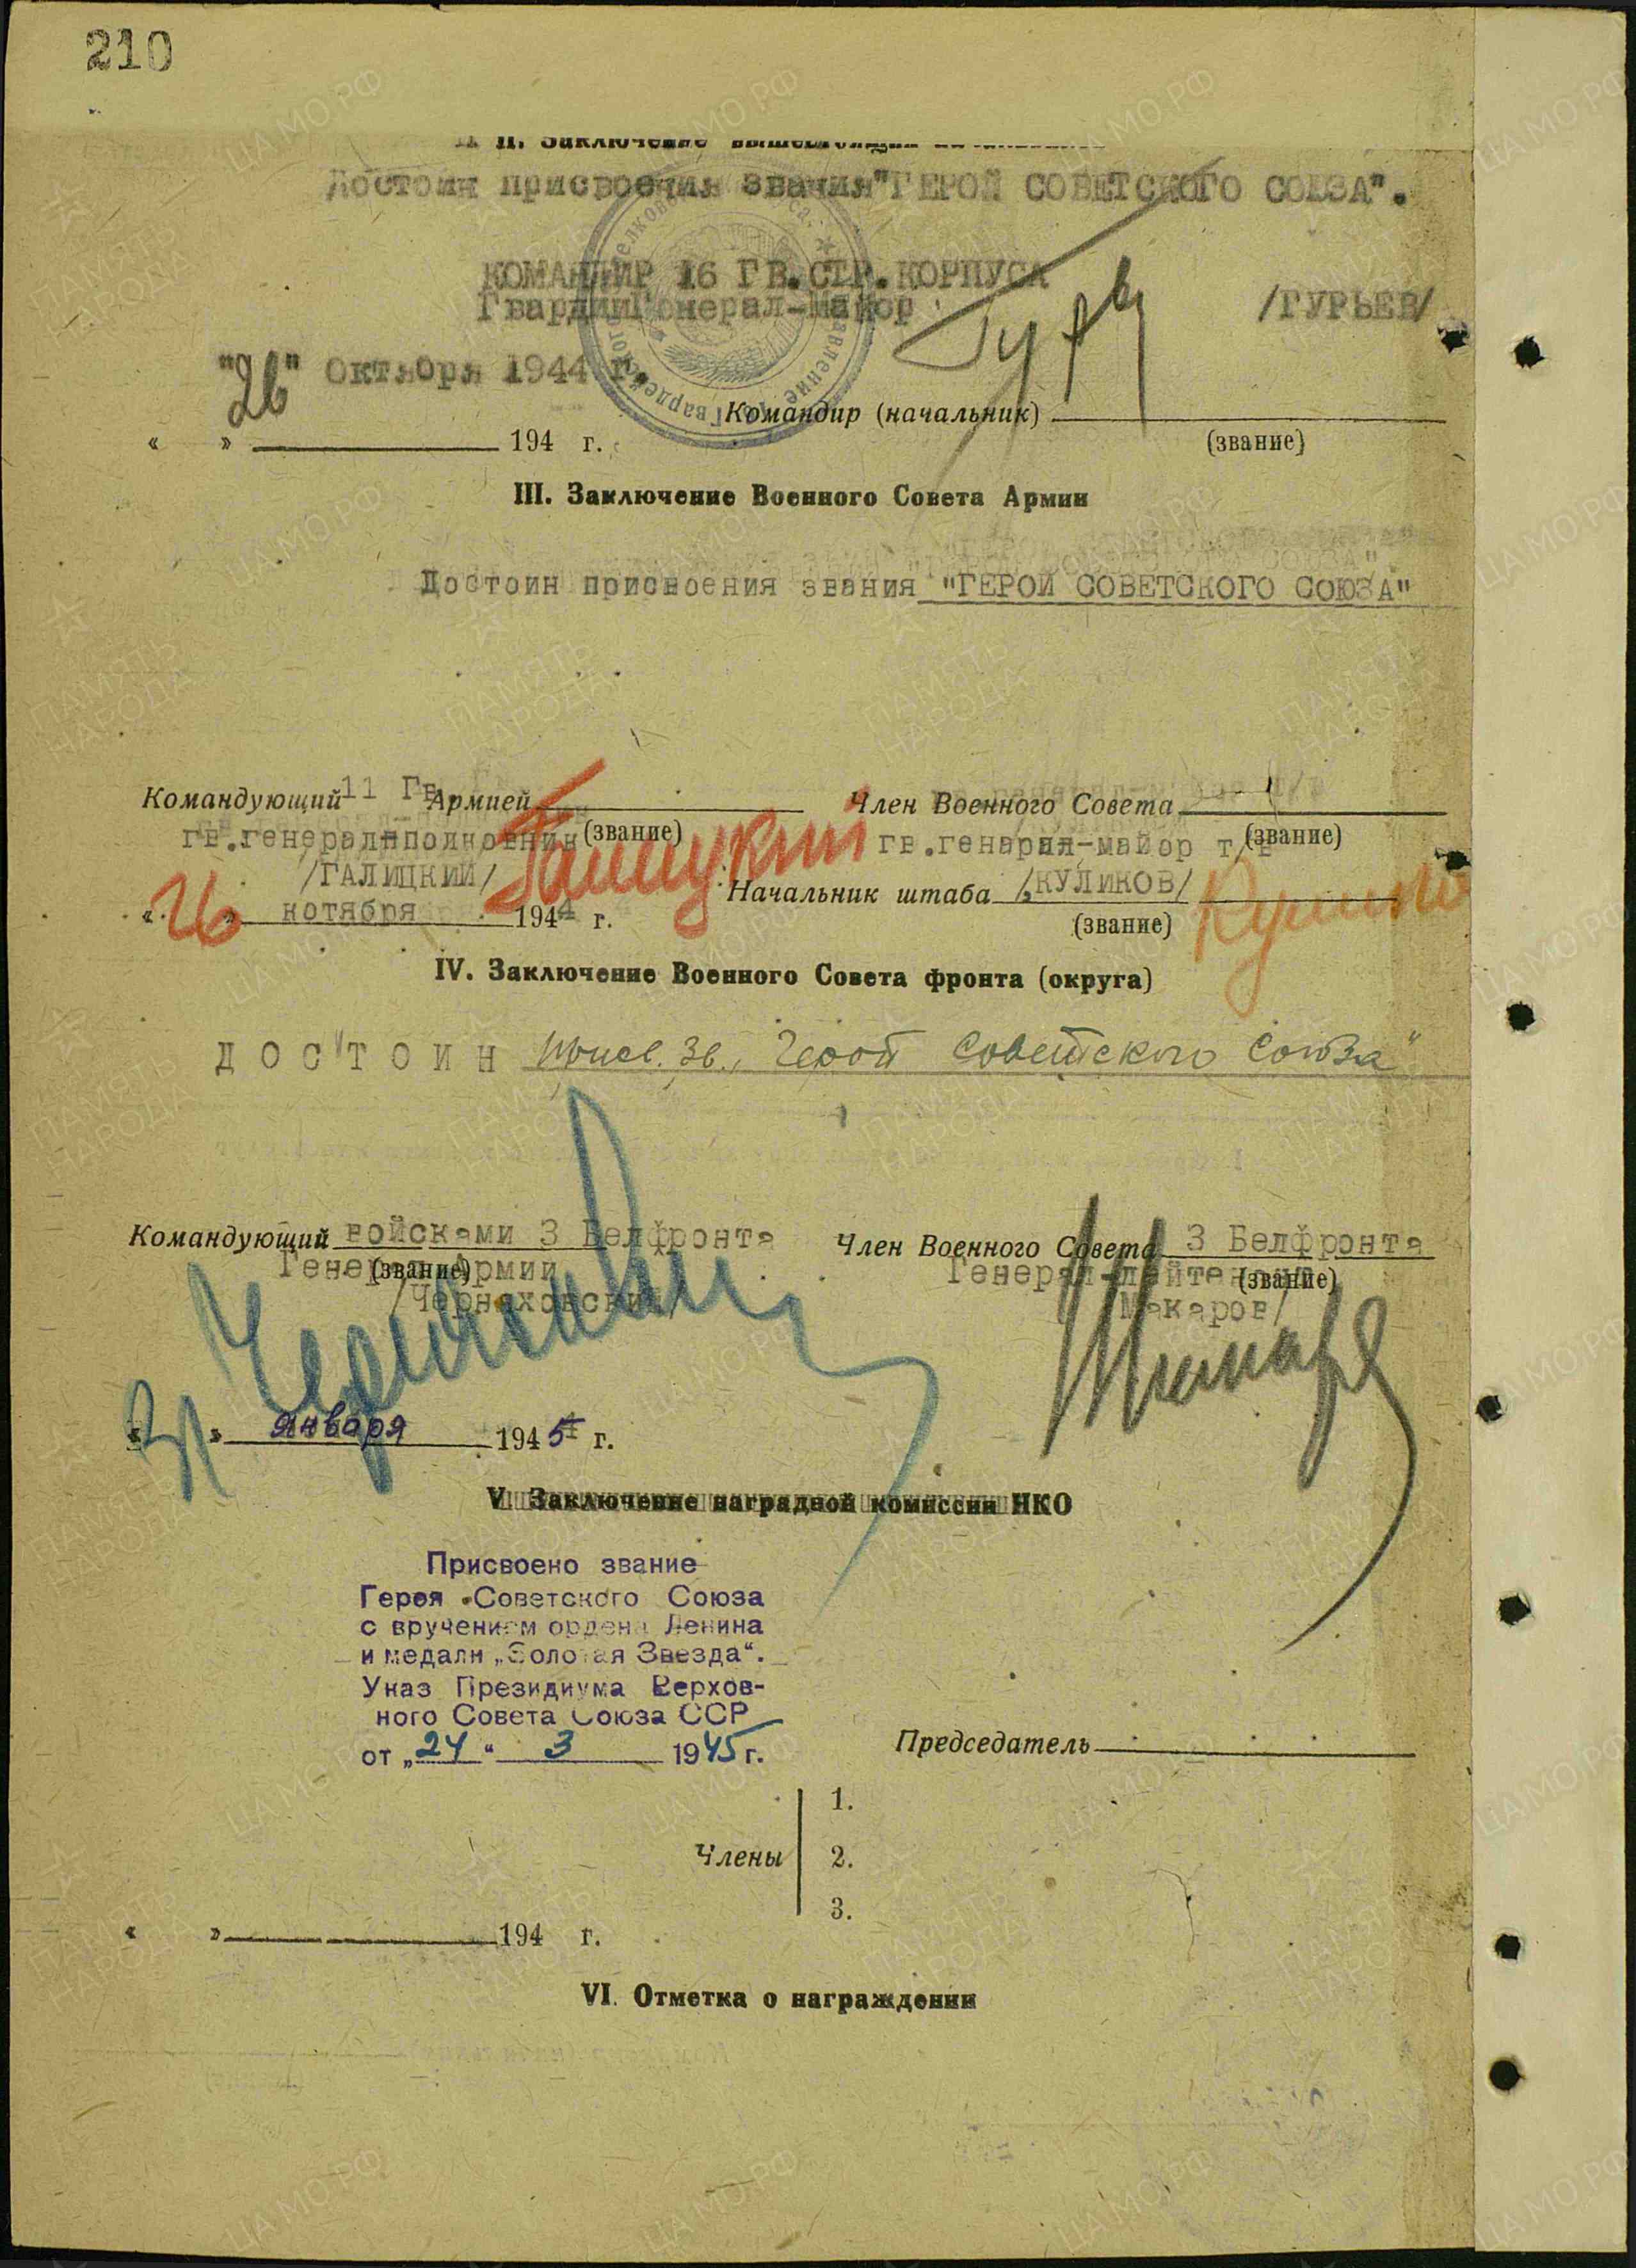 210
II. Заключение
Достоин присвоения звания "ГЕРОЙ СОВЕТСКОГО СОЮЗА".
КОМАНДИР 16 ГВ.СТР.КОРПУСА
Гвардии Генерал-Майор /ГУРЬЕВ/
"26" Октября 1944 г.
Командир (начальник)
« » 194 г.
(звание)
III. Заключение Военного Совета Армии
Достоин присвоения звания "ГЕРОЙ СОВЕТСКОГО СОЮЗА"
Командующий 11 Гв. Армией Член Военного Совета
гв.генерал-полковник (звание) гв.генерал-майор т/в (звание)
/ГАЛИЦКИЙ/ Галицкий
Начальник штаба /КУЛИКОВ/
«26» нотября 1944 г. (звание)
IV. Заключение Военного Совета фронта (округа)
ДОСТОИН присв. зв. „Герой Советского Союза"
Командующий войсками 3 Белфронта Член Военного Совета 3 Белфронта
Генерал Армии (звание) Генерал-лейтенант (звание)
/Черняховский/ Макаров/
января 1945 г.
V. Заключение наградной комиссии НКО
Присвоено звание
Героя Советского Союза
с вручением ордена Ленина
и медали „Золотая Звезда“.
Указ Президиума Верхов-
ного Совета Союза ССР
от „24“ 3 1945 г.
Председатель
1.
Члены 2.
3.
« » 194 г.
VI. Отметка о награждении
ЦА МО РФ
ПАМЯТЬ НАРОДА